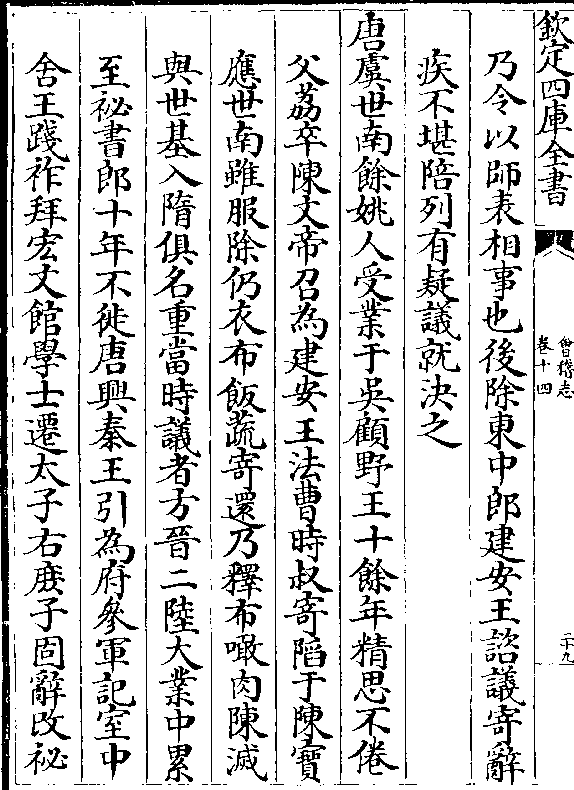 欽定四庫全書
會稽志
卷十四
二十九
乃令以師表相事也後除東中郎建安王諮議寄辭
疾不堪陪列有疑議就決之
唐虞世南餘姚人受業于吳顧野王十餘年精思不倦
父荔卒陳文帝召為建安王法曹時叔寄陷于陳寶
應世南雖服除仍衣布飯蔬寄還乃釋布噉肉陳滅
與世基入隋俱名重當時議者方晉二陸大業中累
至祕書郎十年不徙唐興秦王引為府參軍記室中
舍王踐祚拜宏文館學士遷太子右庶子固辭改祕